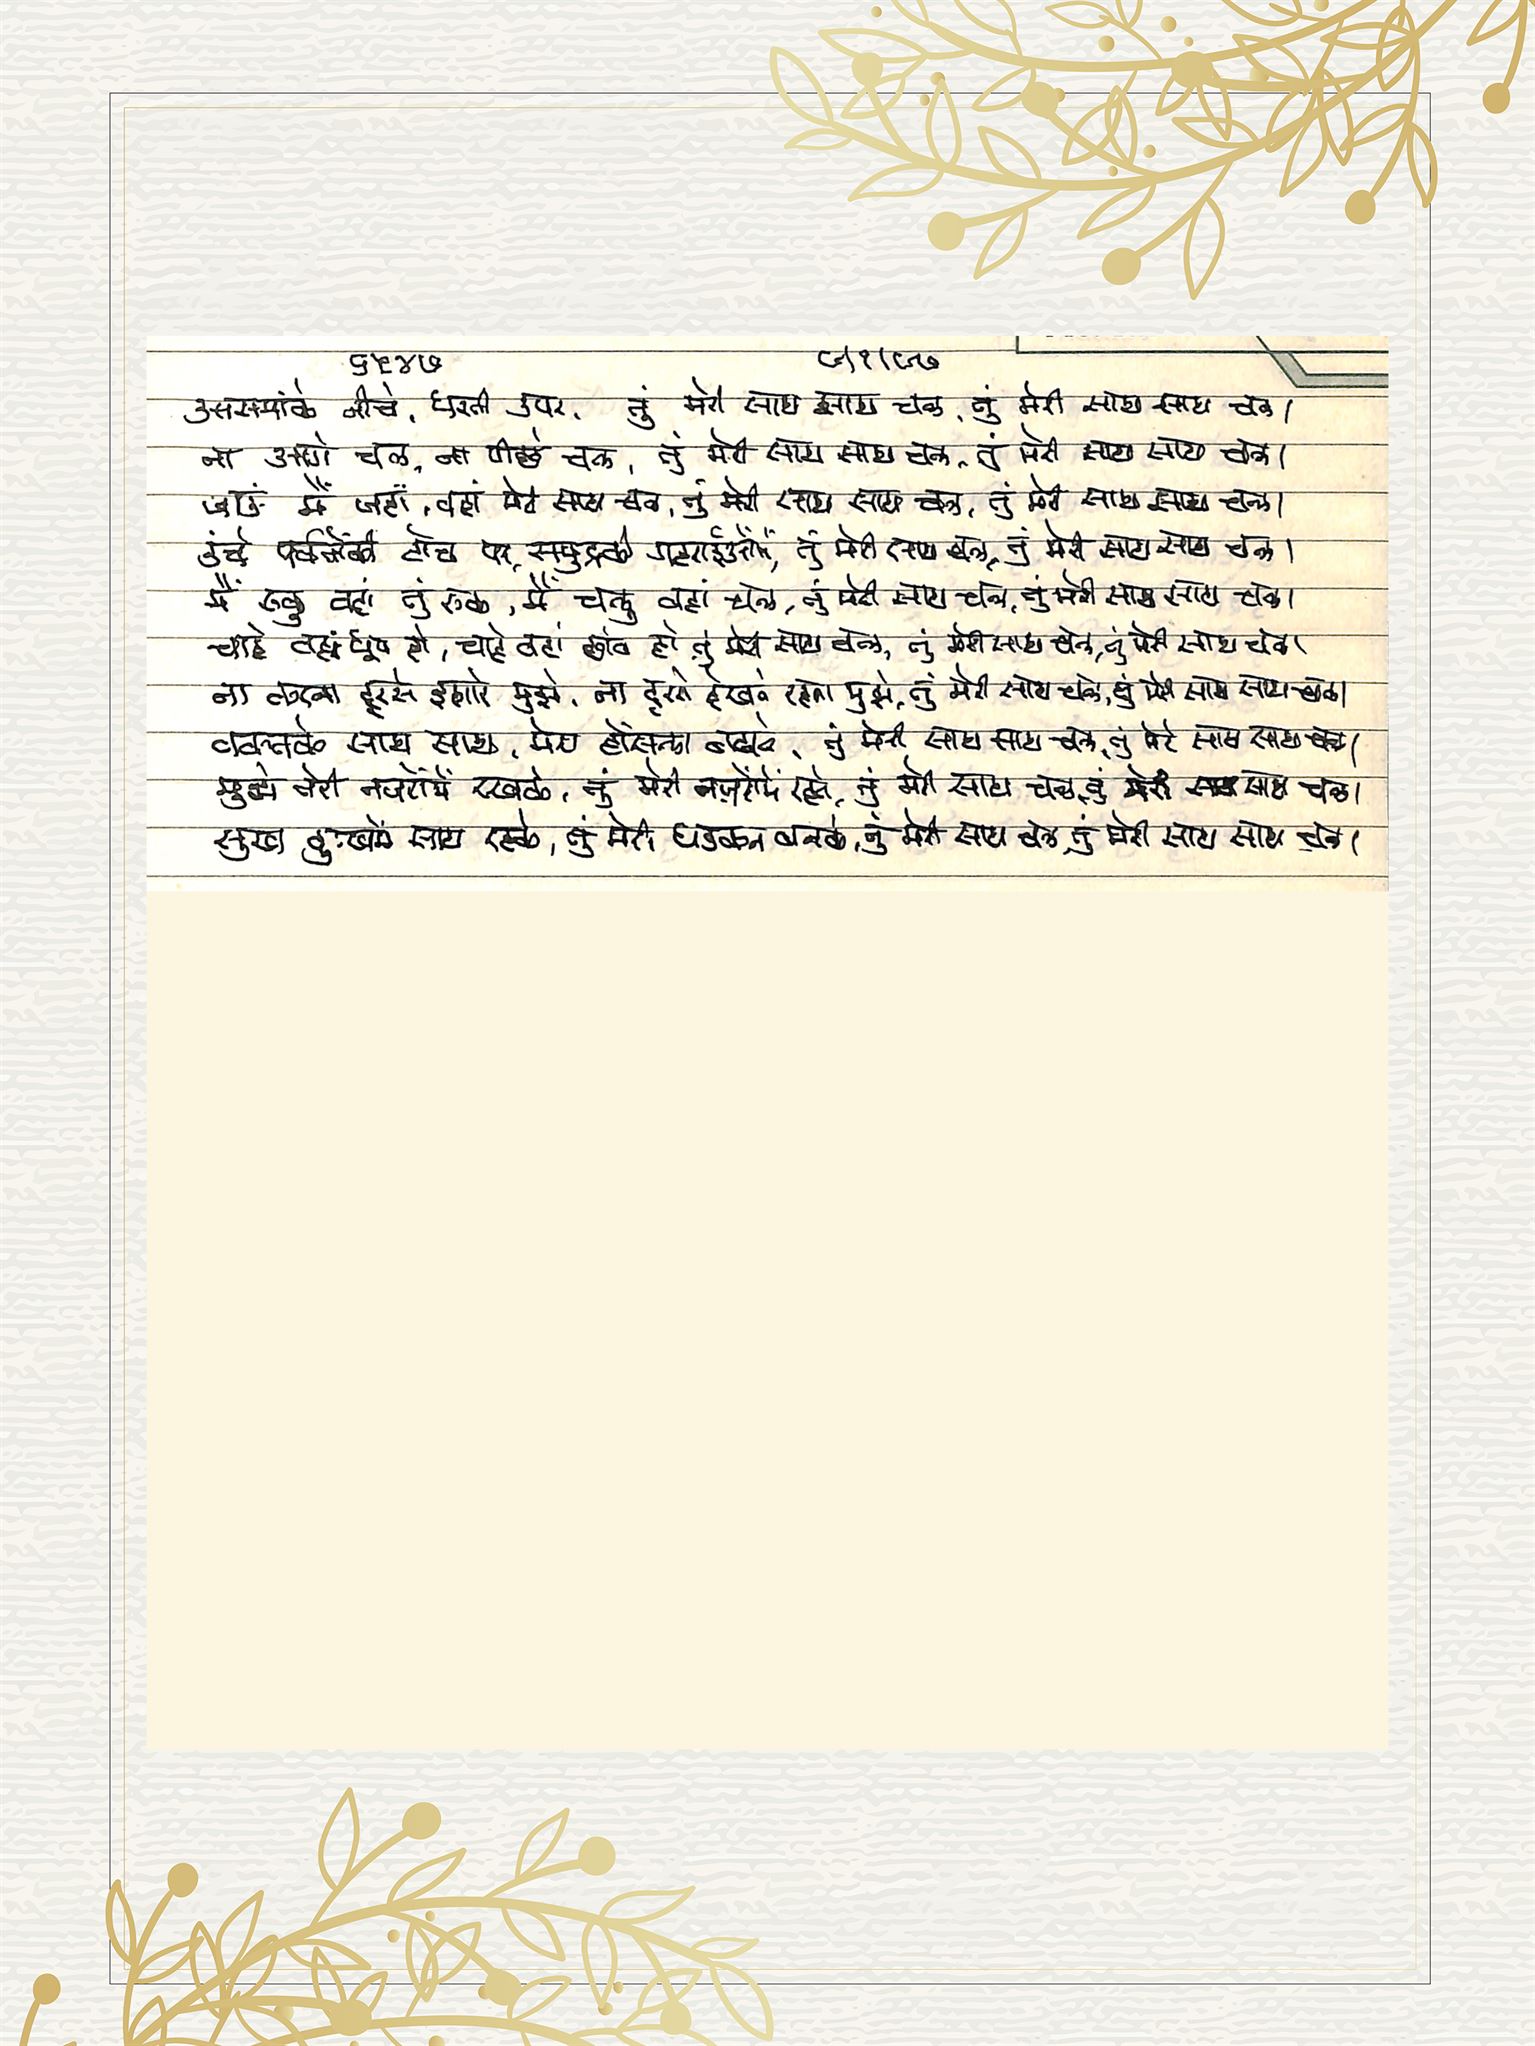 ५९४७ ८/१/८७
आसमांके नीचे, धरती उपर, तुं मेरी साथ साथ चल, तुं मेरी साथ साथ चल।
ना आगे चल, ना पीछे चल, तुं मेरी साथ साथ चल, तुं मेरी साथ साथ चल।
जाउं मैं जहां, वहां मेरी साथ चल, तुं मेरी साथ साथ चल, तुं मेरी साथ साथ चल।
उंचे पर्वतोंकी टोंच पर, समुद्रकी गहराईओंमें, तुं मेरी साथ चल, तुं मेरी साथ साथ चल।
मैं रुकु वहां तुं रुक, मैं चलु वहां चल, तुं मेरी साथ चल, तुं मेरी साथ साथ चल।
चाहे वहां धूप हो, चाहे वहां छांव हो, तुं मेरी साथ चल, तुं मेरी साथ चल, तुं मेरी साथ चल।
ना करना दूरसे इशारे मुझे, ना दूरसे देखते रहना मुझे, तुं मेरी साथ चल, तुं मेरी साथ साथ चल।
वक्तके साथ साथ, मेरा हौंसला बढ़ाते, तुं मेरी साथ साथ चल, तुं मेरे साथ साथ चल।
मुझे तेरी नजरोंमें रखके, तुं मेरी नजरोंमें रहके, तुं मेरी साथ चल, तुं मेरी साथ साथ चल।
सुख दुःखमें साथ रहके, तुं मेरी धडकन बनके, तुं मेरी साथ चल, तुं मेरी साथ साथ चल।